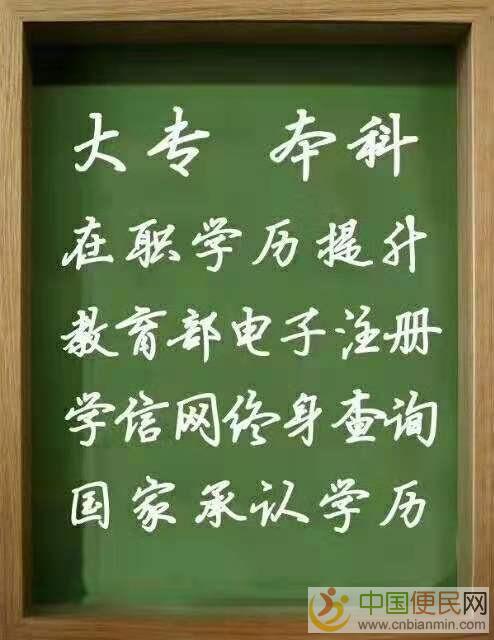 大专 本科
在职学历提升
教育部电子注册
学信网终身查询
国家承认学历
中国便民网
www.cnbianmin.com